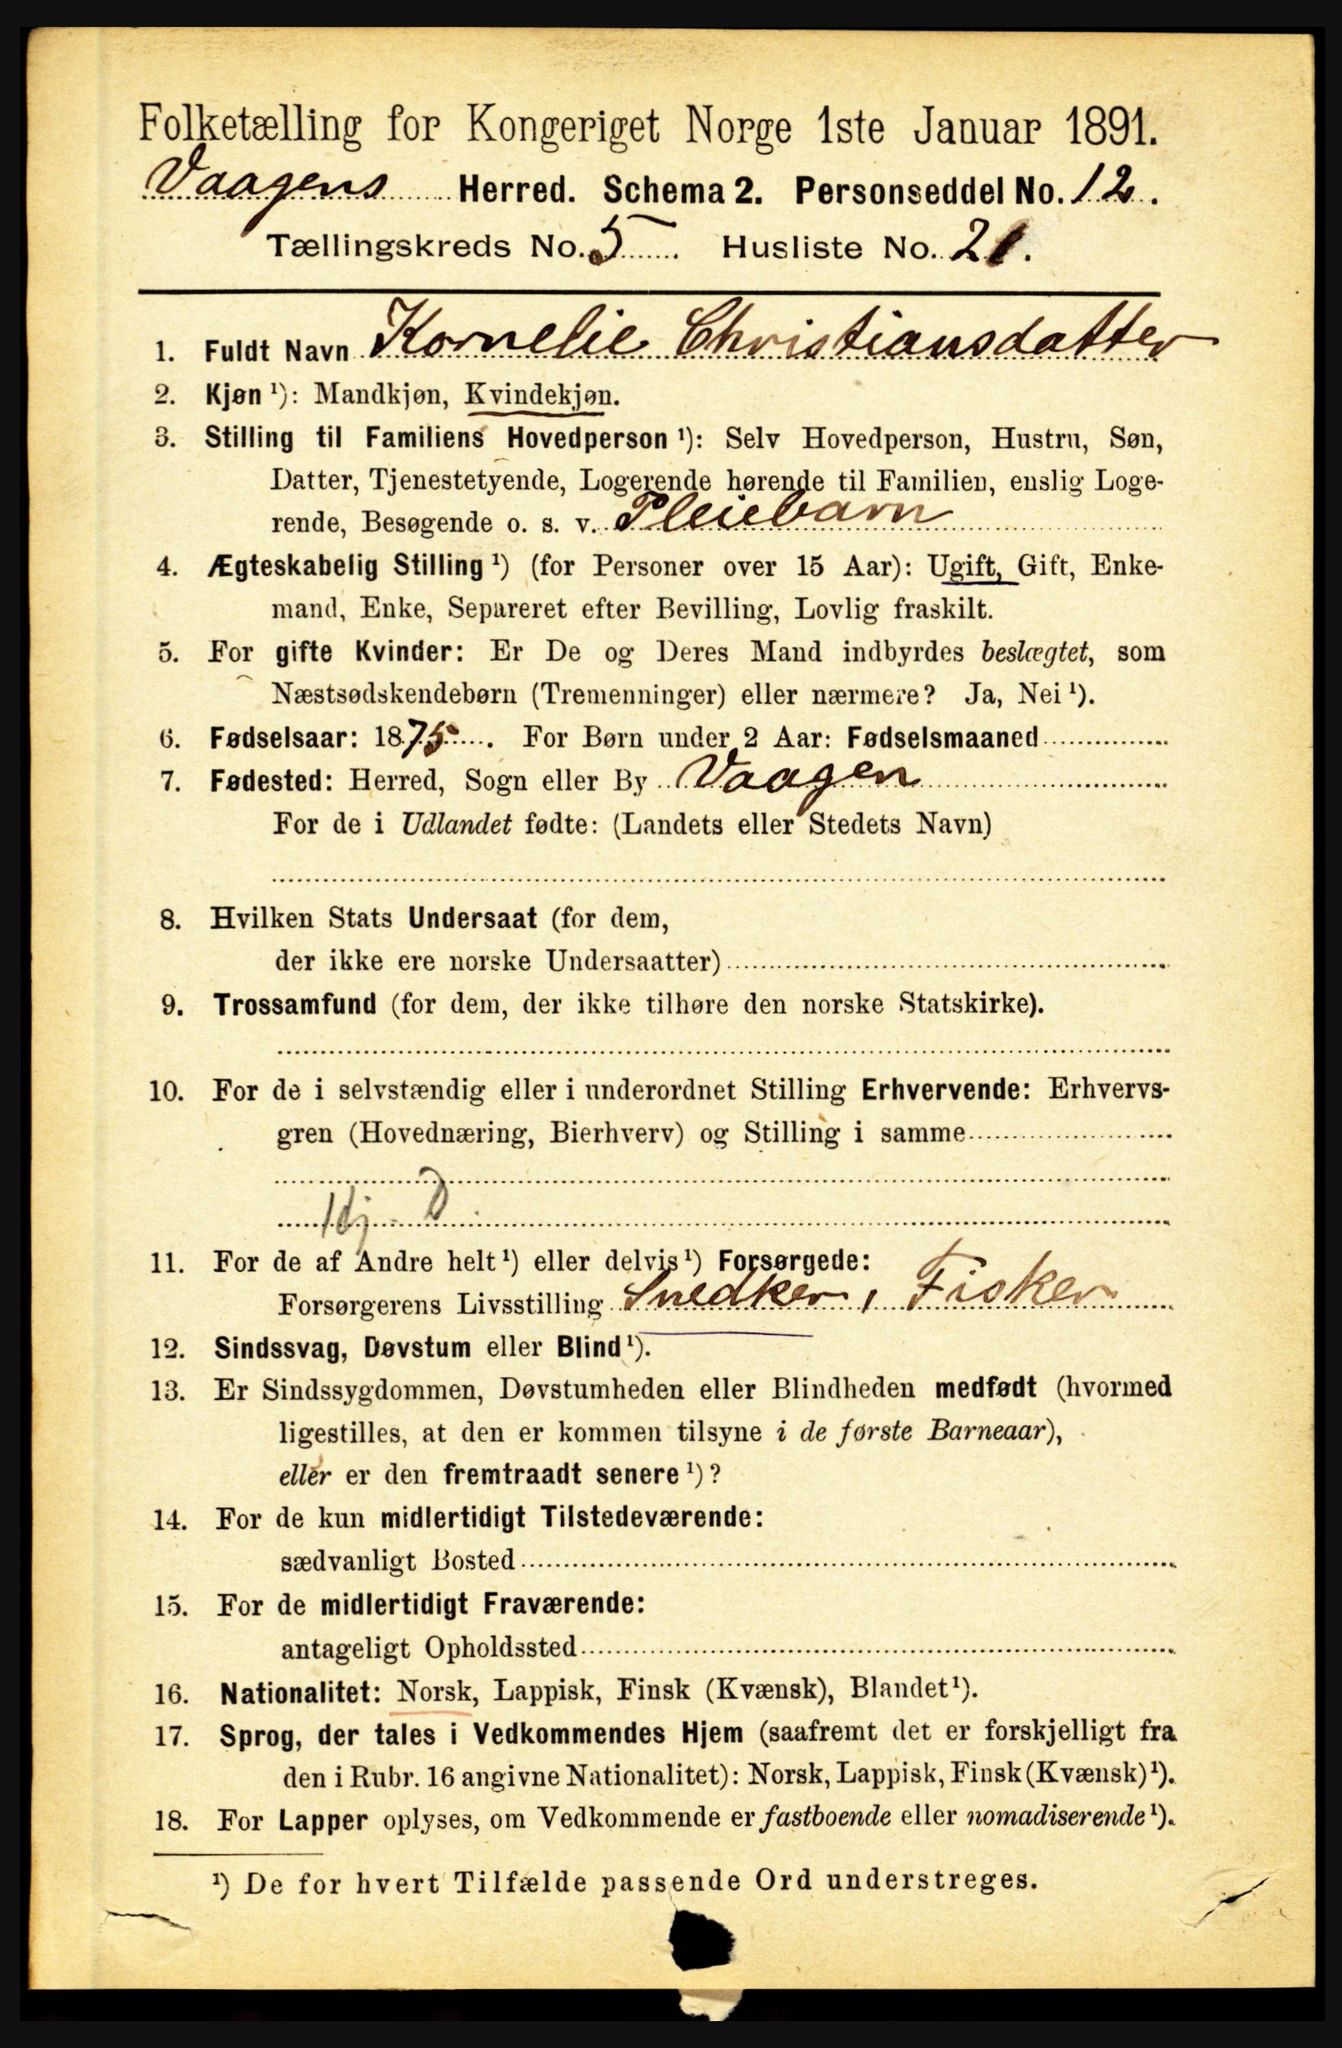 Folketælling for Kongeriget Norge 1ste Januar 1891.
Vaagens Herred. Schema 2. Personseddel No. 12.
Tællingskreds No. 5. Husliste No. 21.
1. Fuldt Navn Kornelie Christiansdatter
2. Kjøn ¹): Mandkjøn, Kvindekjøn.
3. Stilling til Familiens Hovedperson ¹): Selv Hovedperson, Hustru, Søn,
Datter, Tjenestetyende, Logerende hørende til Familien, enslig Loge-
rende, Besøgende o. s. v. Pleiebarn
4. Ægteskabelig Stilling ¹) (for Personer over 15 Aar): Ugift, Gift, Enke-
mand, Enke, Separeret efter Bevilling, Lovlig fraskilt.
5. For gifte Kvinder: Er De og Deres Mand indbyrdes beslægtet, som
Næstsødskendebørn (Tremenninger) eller nærmere? Ja, Nei ¹).
6. Fødselsaar: 1875. For Børn under 2 Aar: Fødselsmaaned
7. Fødested: Herred, Sogn eller By Vaagen
For de i Udlandet fødte: (Landets eller Stedets Navn)
8. Hvilken Stats Undersaat (for dem,
der ikke ere norske Undersaatter)
9. Trossamfund (for dem, der ikke tilhøre den norske Statskirke).
10. For de i selvstændig eller i underordnet Stilling Erhvervende: Erhvervs-
gren (Hovednæring, Bierhverv) og Stilling i samme
11. For de af Andre helt ¹) eller delvis ¹) Forsørgede:
Forsørgerens Livsstilling Snedker, Fisker
12. Sindssvag, Døvstum eller Blind ¹).
13. Er Sindssygdommen, Døvstumheden eller Blindheden medfødt (hvormed
ligestilles, at den er kommen tilsyne i de første Barneaar),
eller er den fremtraadt senere ¹)?
14. For de kun midlertidigt Tilstedeværende:
sædvanligt Bosted
15. For de midlertidigt Fraværende:
antageligt Opholdssted
16. Nationalitet: Norsk, Lappisk, Finsk (Kvænsk), Blandet ¹).
17. Sprog, der tales i Vedkommendes Hjem (saafremt det er forskjelligt fra
den i Rubr. 16 angivne Nationalitet): Norsk, Lappisk, Finsk (Kvænsk) ¹).
18. For Lapper oplyses, om Vedkommende er fastboende eller nomadiserende ¹).
¹) De for hvert Tilfælde passende Ord understreges.